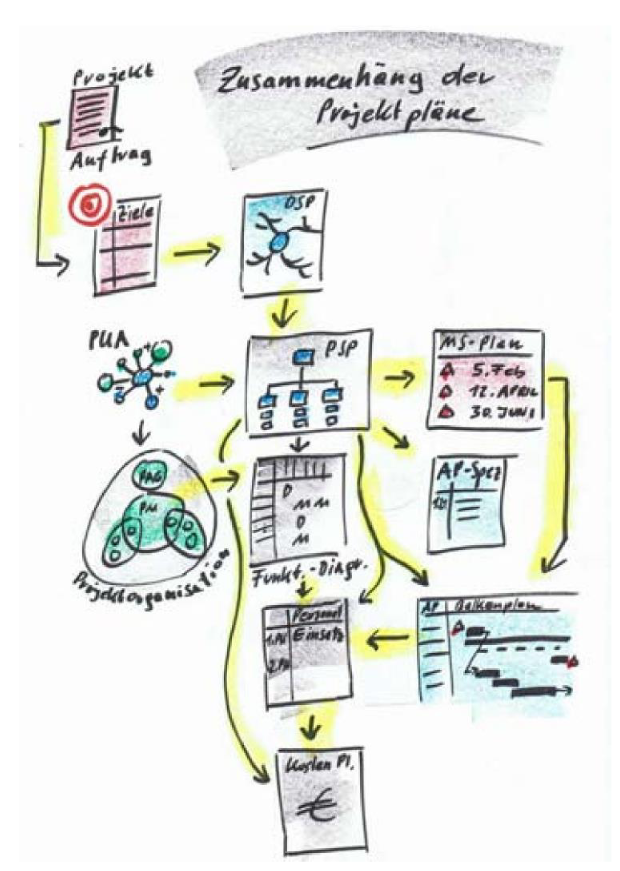 Zusammenhäng der
Projektpläne
Projekt
Auftrag
Ziele
OSP
PUA
PSP
MS-Plan
5. Feb
12. APRIL
30. JUNI
PAG
PM
Projektorganisation
D
MM
D
M
Funkt.-Diagr.
AP-Spez
Personal
Einsatz
1.PM
AP Balkenplan
Kosten Pl.
€